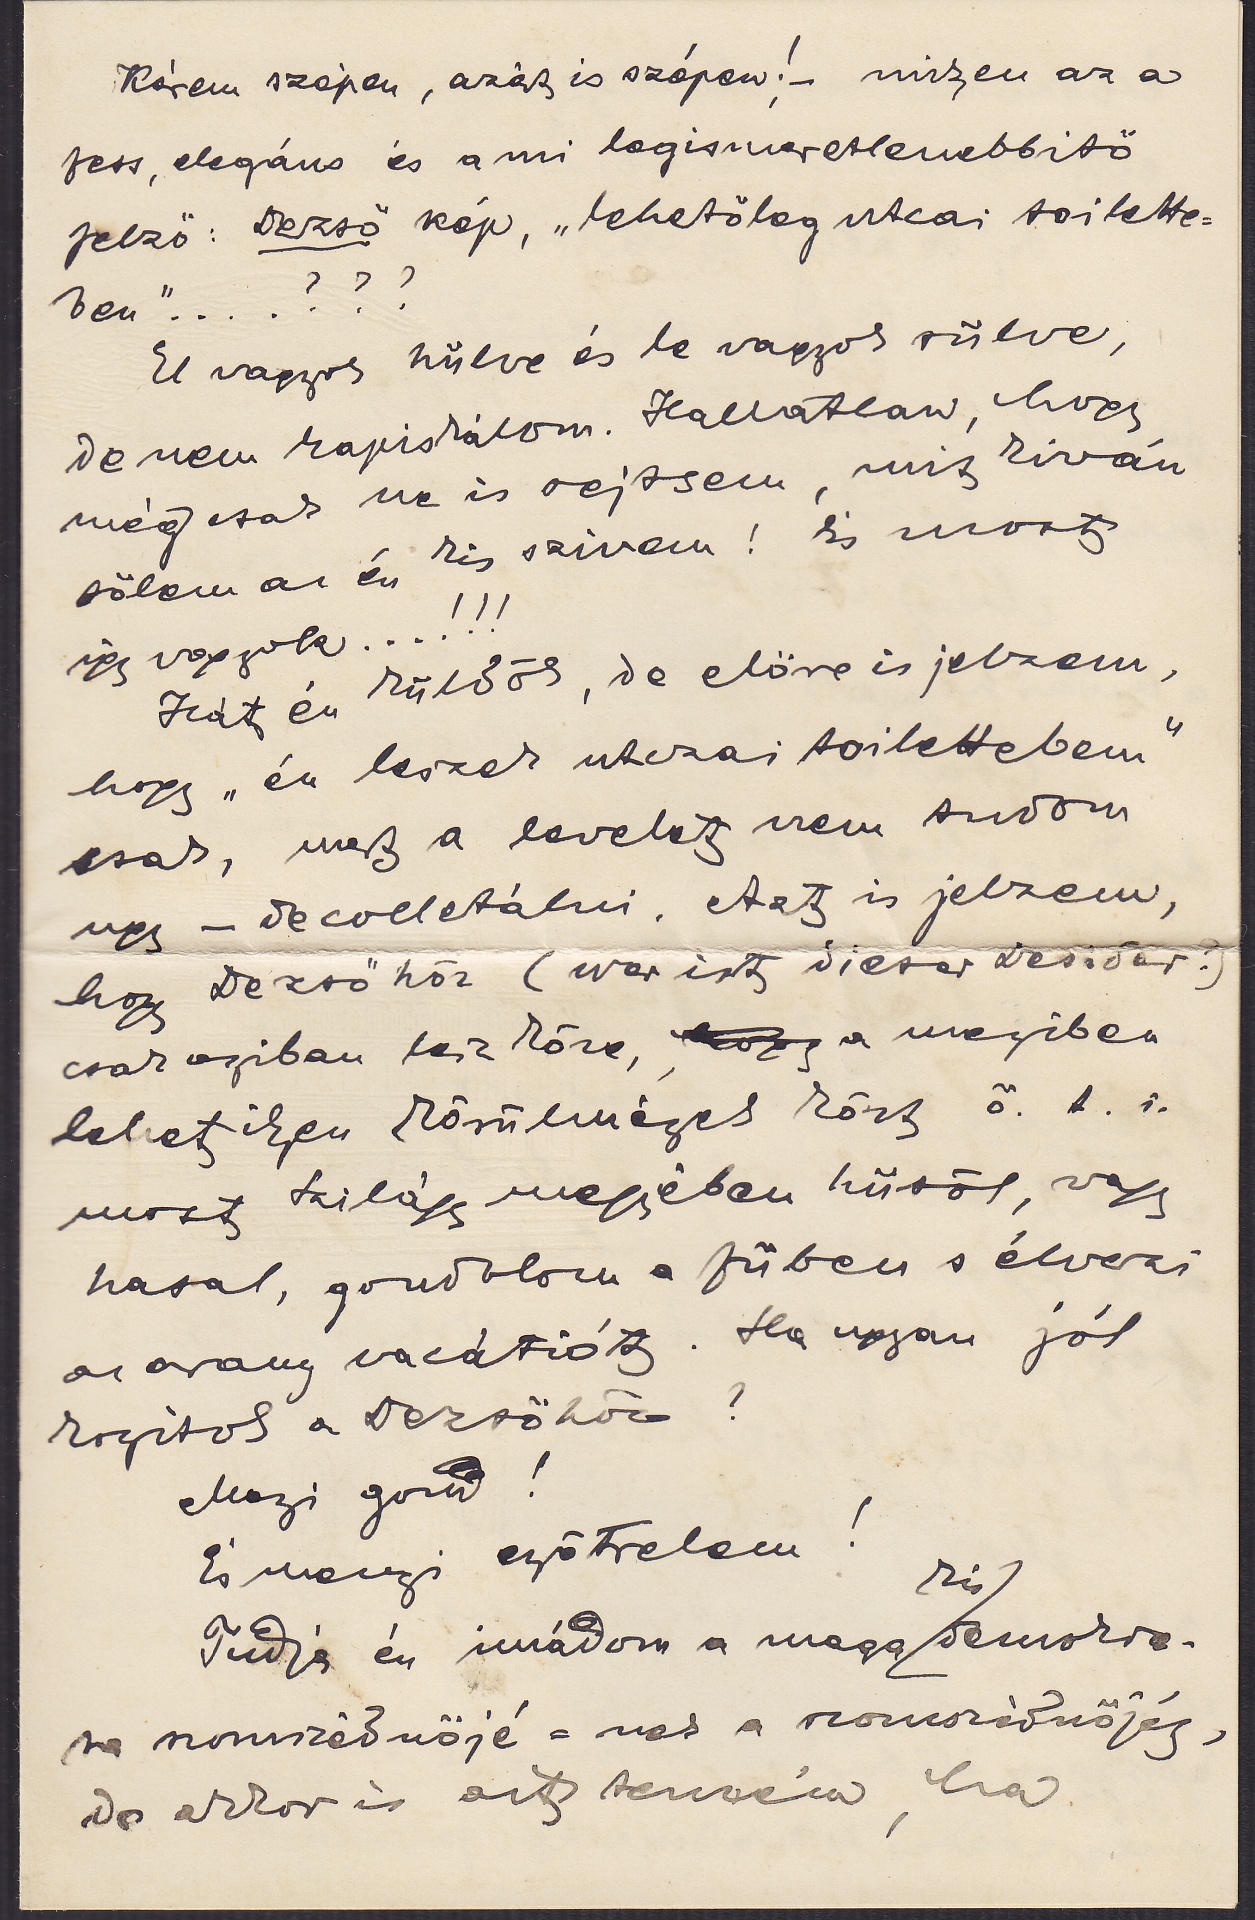 Kérem szépen, azért is szépen! – miljen az a
fess, elegáns és a mi legismeretlenebbitő
jelző: Dezső kép, „lehetőleg utcai toilette=
ben".....???
El vagyok hülve és le vagyok sülve,
de nem kapiskálom. Hallatlan, hogy
még csak ne is sejtsem, mit kiván
tőlem az én kis szivem! És most
igy vagyok....!!!
Hát én küldök, de előre is jelzem,
hogy „én leszek utczai toilettebem"
csak, mert a levelet nem tudom
ugy – decolletálni. Azt is jelzem,
hogy Dezsőhöz (wer ist dieser Desider?)
csak annyiban lesz köze, a mennyiben
lehet ilyen körülmények közt ő. t. i.
most Szilágy megyében hüsöl, vagy
hasal, gondolom a fűben s élvezi
az arany vacátiót. Ha ugyan jól
konyitok a Dezsőhöz?
Menyi gond!
És menyi gyötrelem!
Tudja én imádom a maga kis demokra-
ta szomszédnőjé = nek a szomszédnőjét,
de akkor is azt tenném, ha